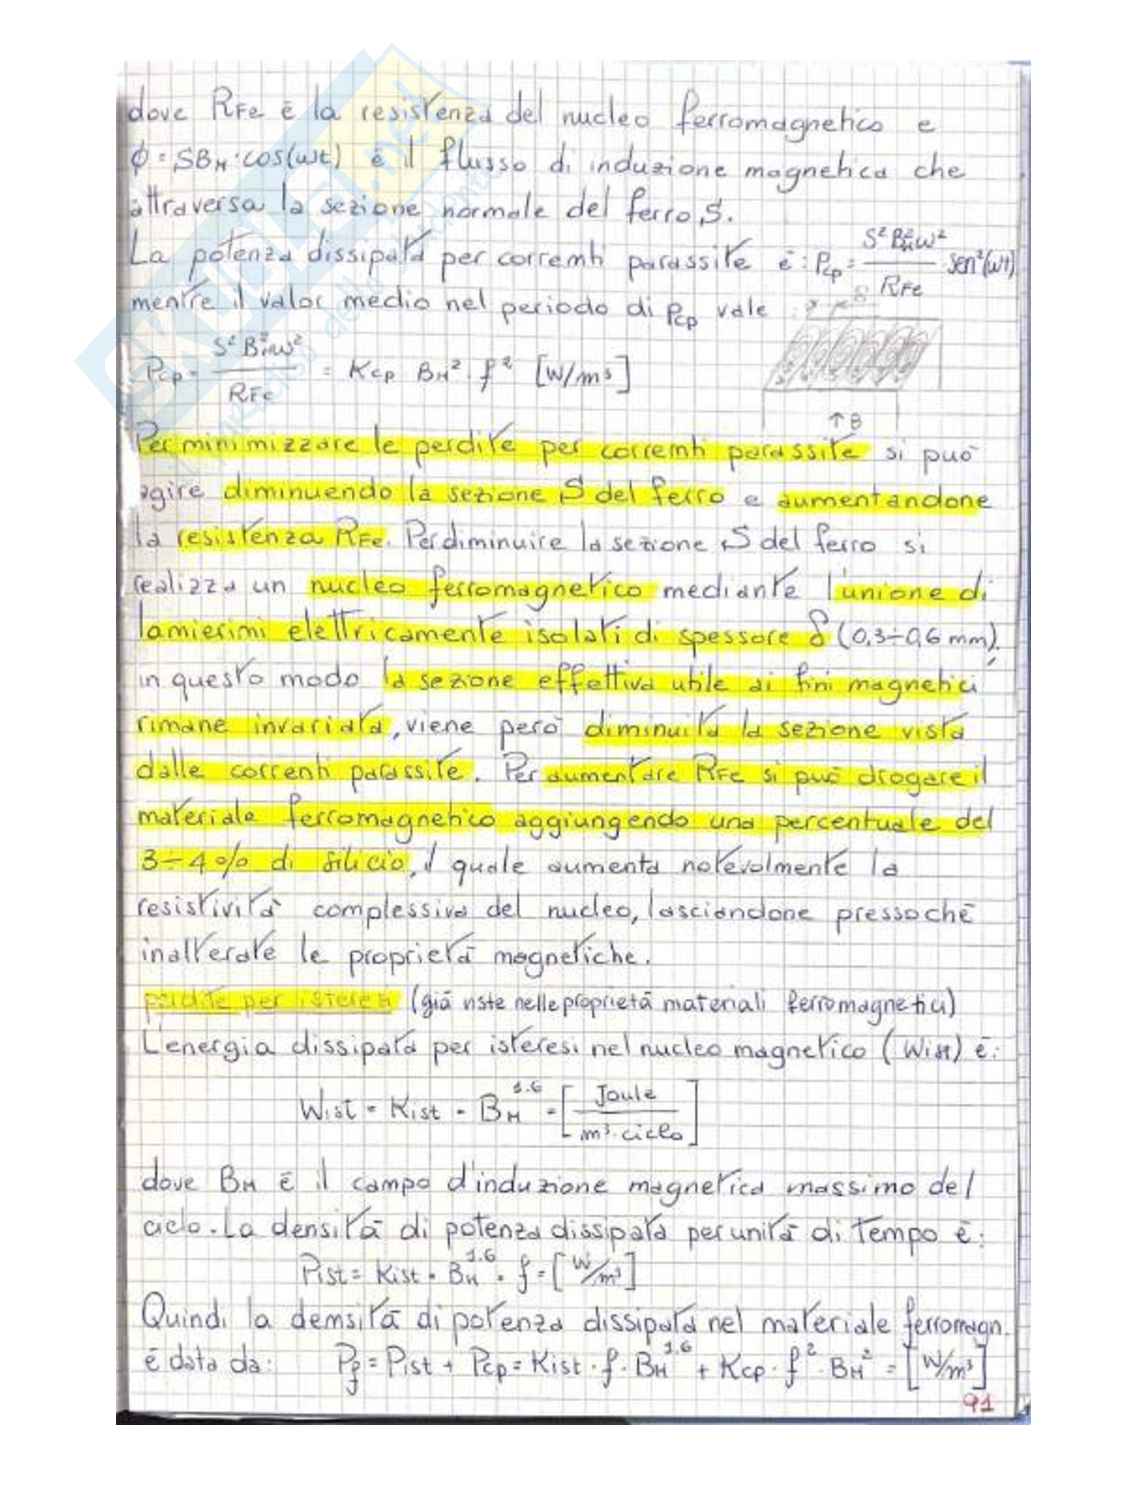 dove RFe è la resistenza del nucleo ferromagnetico e
ϕ = SBM·cos(ωt) è il flusso di induzione magnetica che
attraversa la sezione normale del ferro, S.
La potenza dissipata per correnti parassite è: Pcp = S² BM² ω² / RFe · sen²(ωt)
mentre il valor medio nel periodo di pcp vale
Pcp = S² BM² ω² / RFe = Kcp BM² · f² [W/m³]
↑B
Per minimizzare le perdite per correnti parassite si può
agire diminuendo la sezione S del ferro e aumentandone
la resistenza RFe. Per diminuire la sezione S del ferro si
realizza un nucleo ferromagnetico mediante l'unione di
lamierini elettricamente isolati di spessore δ (0,3÷0,6 mm).
in questo modo la sezione effettiva utile ai fini magnetici
rimane invariata, viene però diminuita la sezione vista
dalle correnti parassite. Per aumentare RFe si può drogare il
materiale ferromagnetico aggiungendo una percentuale del
3÷4% di silicio, il quale aumenta notevolmente la
resistività complessiva del nucleo, lasciandone pressochè
inalterate le proprietà magnetiche.
perdite per isteresi (già viste nelle proprietà materiali ferromagnetici)
L'energia dissipata per isteresi nel nucleo magnetico (Wist) è:
Wist = Kist · BM^1.6 = [Joule / m³·ciclo]
dove BM è il campo d'induzione magnetica massimo del
ciclo. La densità di potenza dissipata per unità di tempo è:
Pist = Kist · BM^1.6 · f = [W/m³]
Quindi la densità di potenza dissipata nel materiale ferromagn.
è data da: Pf = Pist + Pcp = Kist · f · BM^1.6 + Kcp · f² · BM² = [W/m³]
91
SKUOLA.net